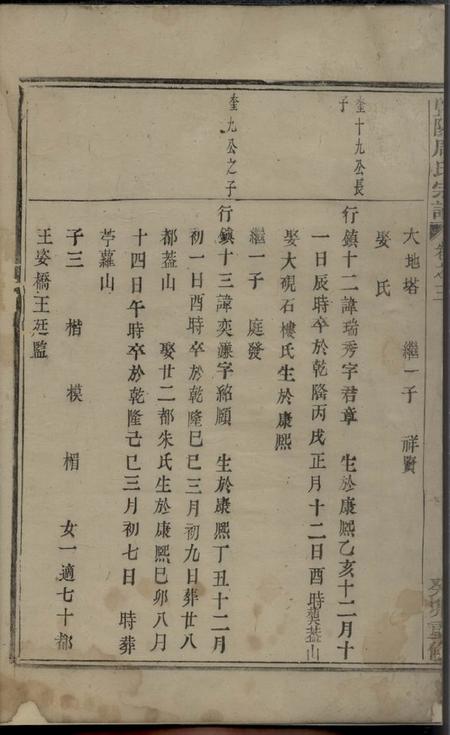 暨陽周氏宗譜
卷之三
大地塔 繼一子 祥賢
娶氏
奎十九公長子
行鎮十二諱瑞秀字君章 生於康熙乙亥十二月十
一日辰時卒於乾隆丙戌正月十二日酉時葬益山
娶大硯石樓氏生於康熙
繼一子 庭發
奎九公之子
行鎮十三諱奕謙字紹顧 生於康熙丁丑十二月
初一日酉時卒於乾隆己巳三月初九日葬廿八
都益山 娶廿二都朱氏生於康熙己卯八月
十四日午時卒於乾隆己巳三月初七日 時葬
苧蘿山
子三 楷 模 楣 女一適七十都
王姿橋王廷監